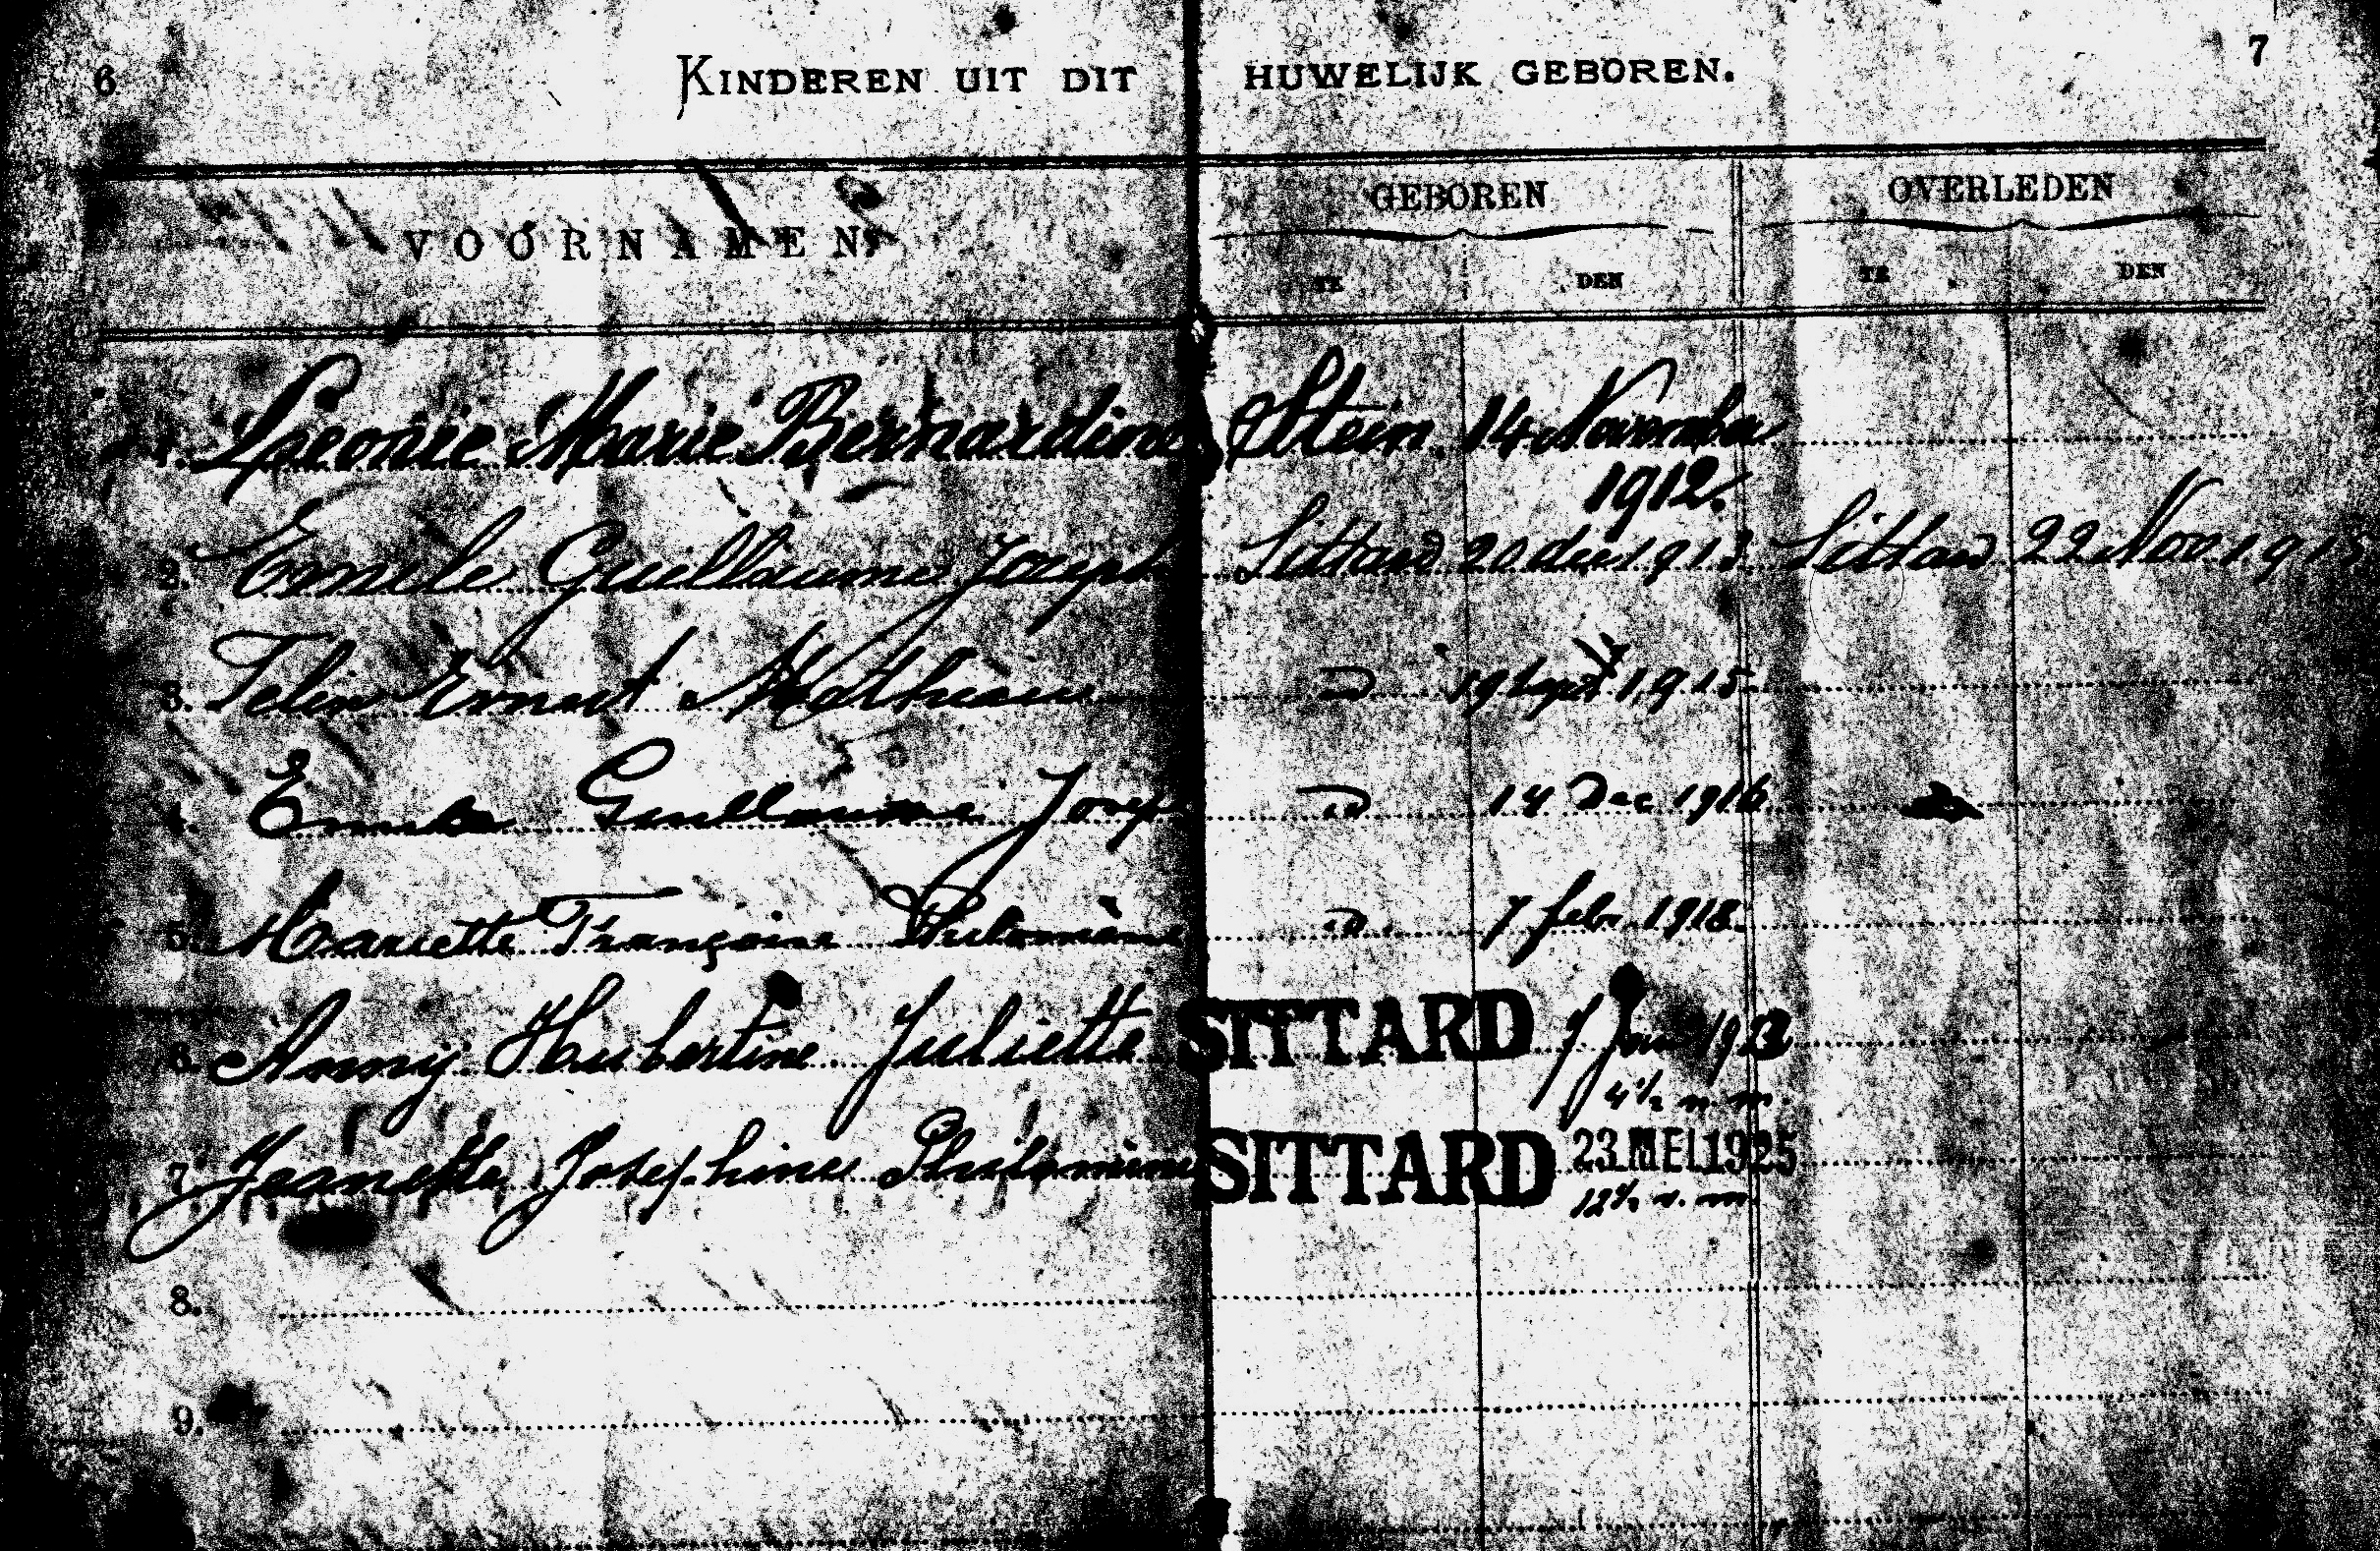 6 KINDEREN UIT DIT HUWELIJK GEBOREN. 7
VOORNAMEN GEBOREN OVERLEDEN
TE DEN TE DEN
1. Leonie Marie Bernardine Stein 14 November
1912.
2. Emile Guillaume Joseph Sittard 20 dec 1913 Sittard 22 Nov 191
3. Felix Ernest Mathieu d 19 Sept 1915
4. Emile Guillaume Josep d 14 Dec 1916
5. Mariette Françoise Philomène d 7 febr. 1918.
6. Anny Hubertine Juliette SITTARD 7 Jan 192
4½ n.m.
7. Jeanette Josephine Philomène SITTARD 23 MEI 1925
12½ n.m.
8.
9.